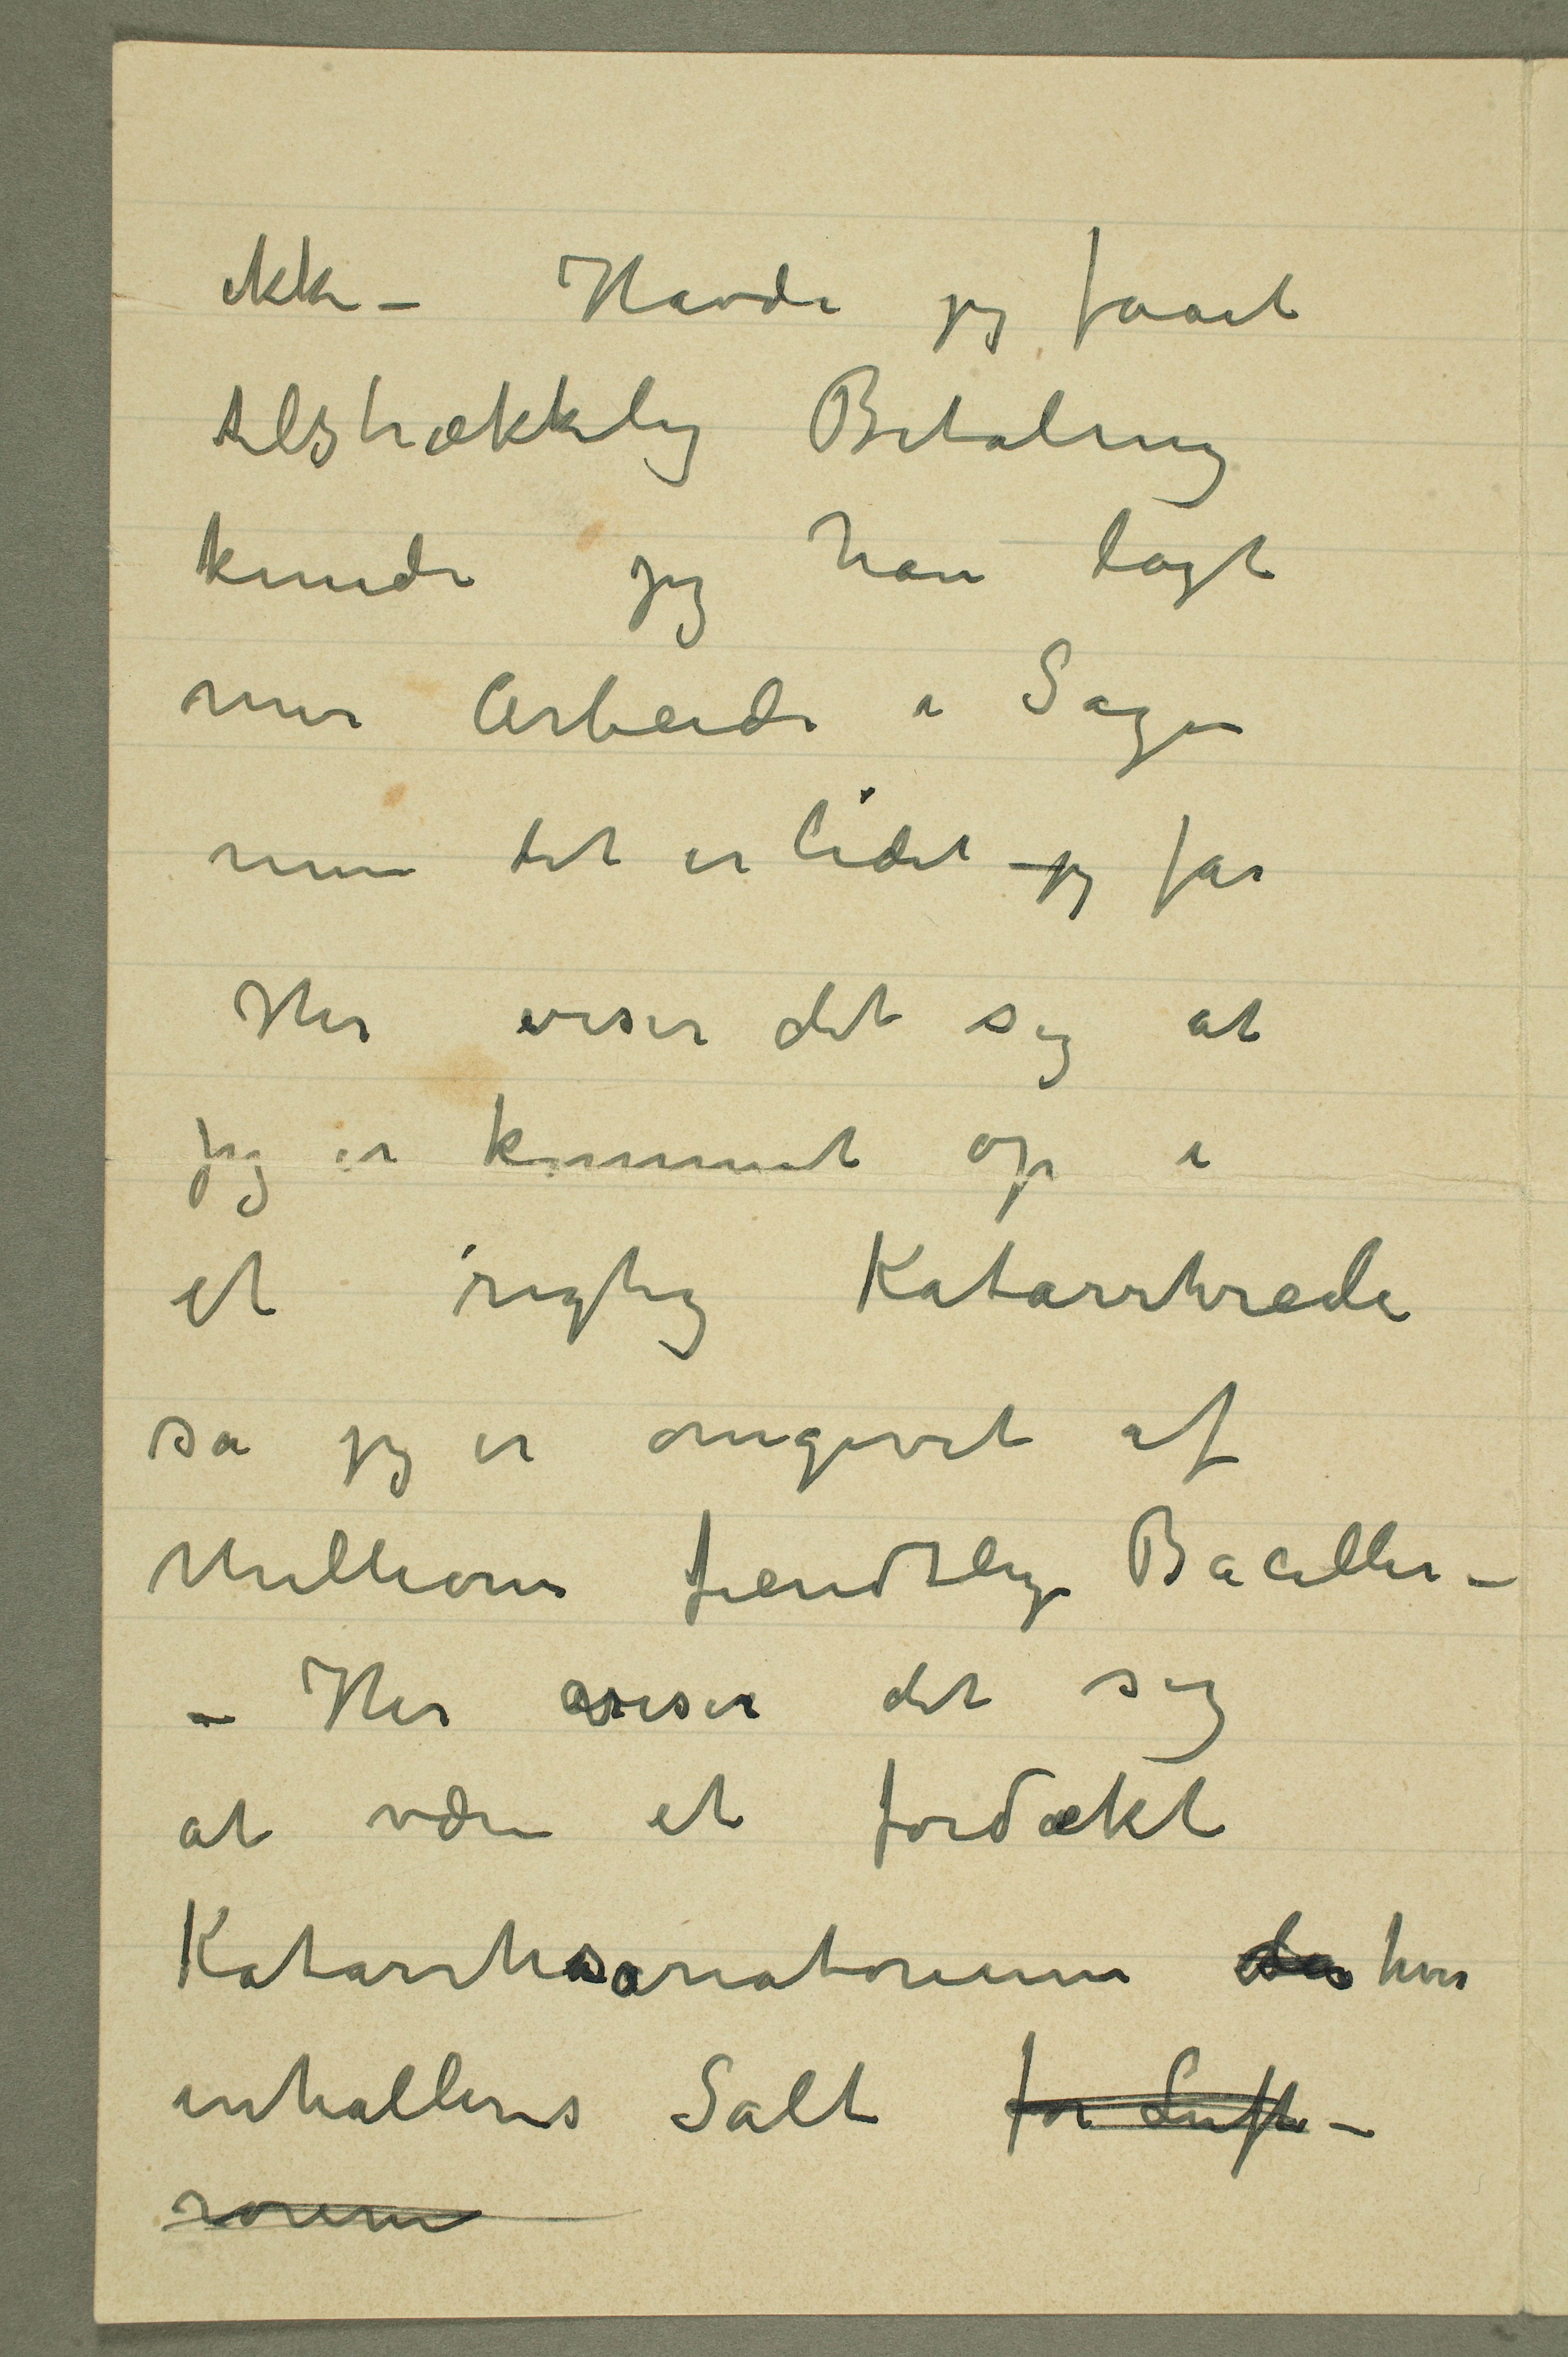 ikke – Havde jeg faaet
tilstrækkelig Betaling
kunde jeg have lagt
mer Arbeide i Sagen
men det er lidet jeg får
Her viser det sig at
jeg er kommet op i
et rigtig Katarrhrede
så jeg er omgivet af
Millioner fiendtlige Baciller –
– Her viser det sig
at være et fordækt
Katarrhsanatorium der hvor
inhalleres Salt for Luft-
rørene